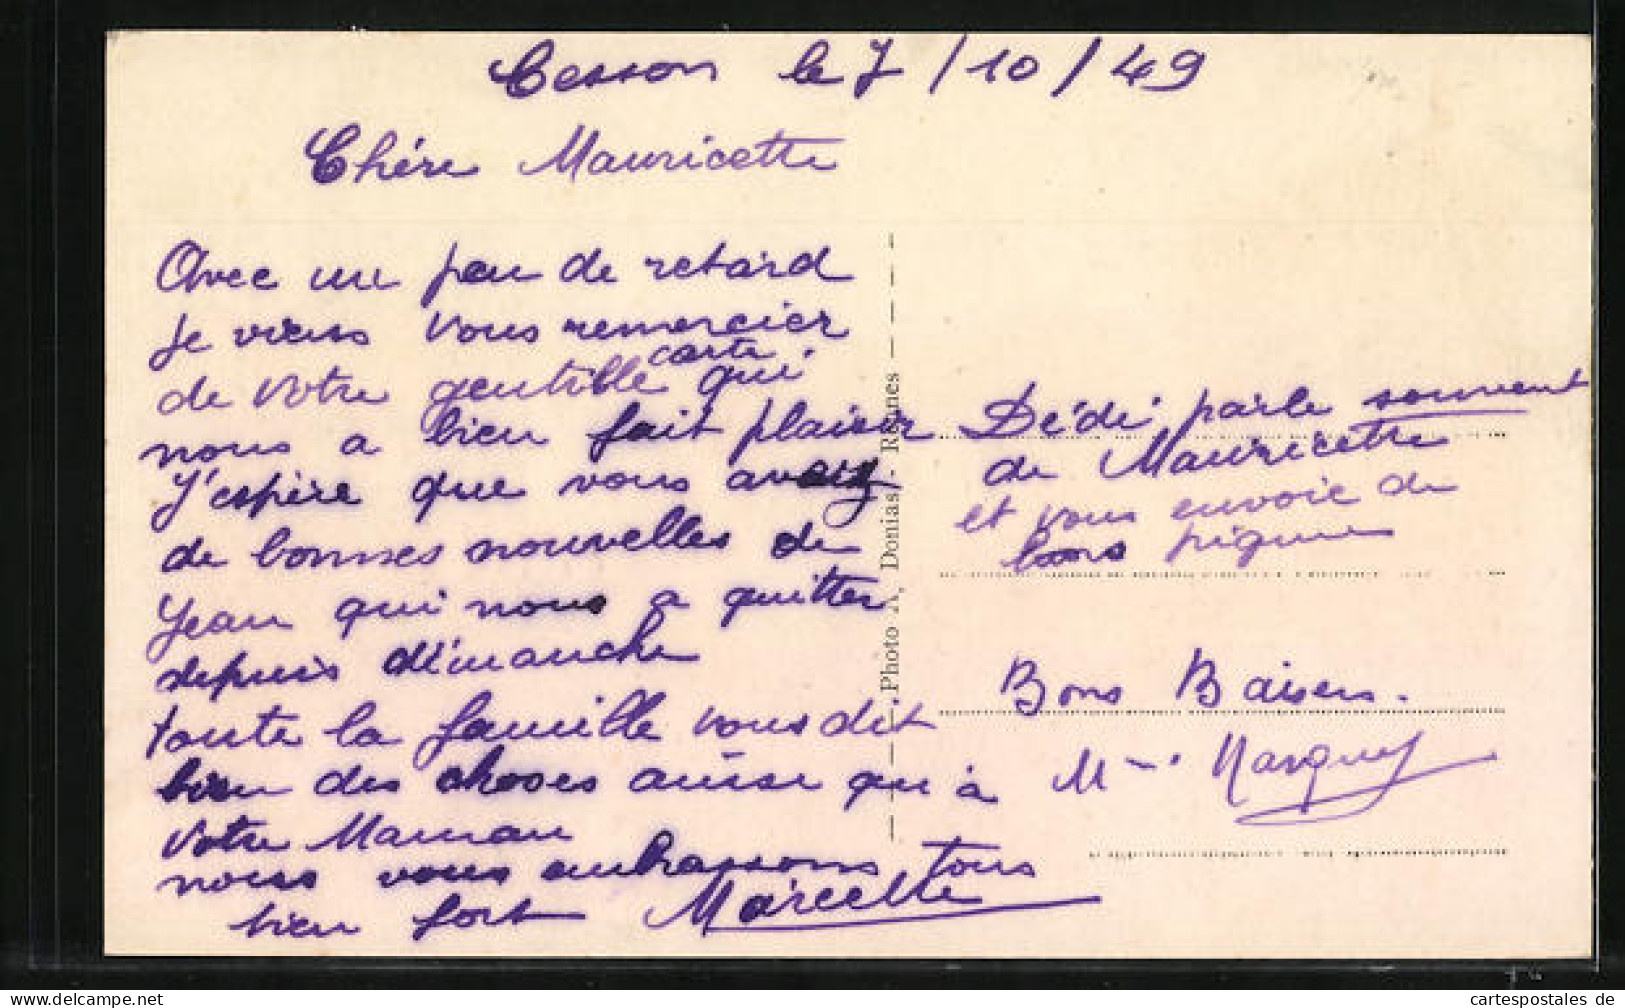 Cesson le 7/10/49
Chére Mauricette
Avec un peu de retard
je viens vous remercier
de votre gentille carte qui
nous a bien fait plaisir
J'espère que vous avez
de bonnes nouvelles de
Jean qui nous a quitter
depuis dimanche
toute la famille vous dit
bien des choses ainsi qu'à
votre Maman
nous vous embrassons tous
bien fort Marcelle
Photo A, Donias - Rennes
Dédé parle souvent
de Mauricette
et vous envoie de
bons
Bons Baisers.
cartespostales de